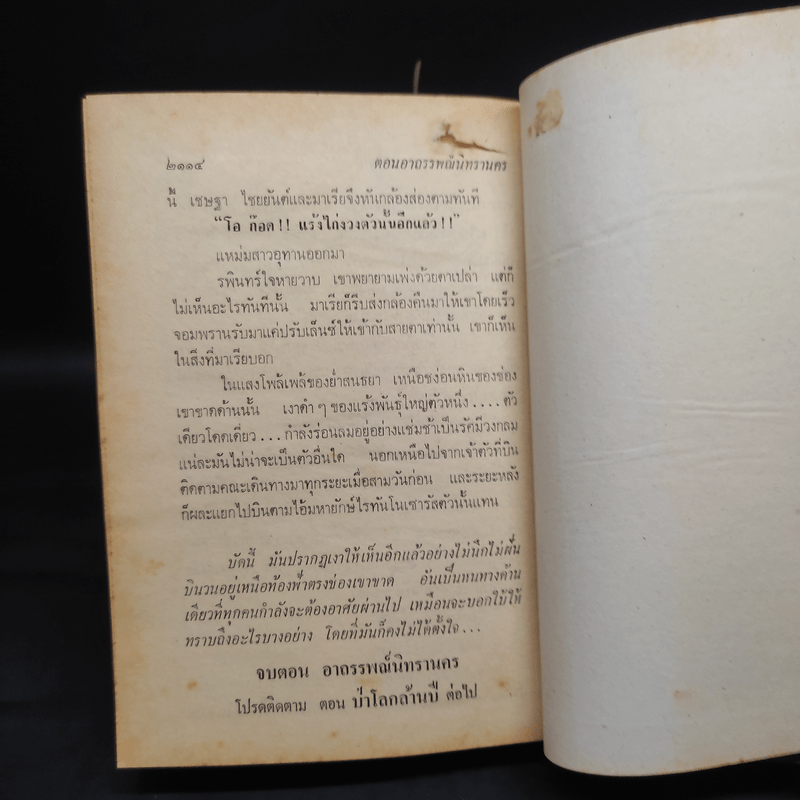 ๒๑๑๔
ตอนอาถรรพณ์นิทรานคร
นี้ เชษฐา ไชยยันต์และมาเรียจึงหันกล้องส่องตามทันที
“โอ ก๊อด!! แร้งไก่งวงตัวนั้นอีกแล้ว!!”
แหม่มสาวอุทานออกมา
รพินทร์ใจหายวาบ เขาพยายามเพ่งด้วยตาเปล่า แต่ก็
ไม่เห็นอะไรทันทีนั้น มาเรียก็รีบส่งกล้องคืนมาให้เขาโดยเร็ว
จอมพรานรับมาแค่ปรับเล็นซ์ให้เข้ากับสายตาเท่านั้น เขาก็เห็น
ในสิ่งที่มาเรียบอก
ในแสงโพล้เพล้ของย่ำสนธยา เหนือชง่อนหินของช่อง
เขาขาดด้านนั้น เงาดำๆ ของแร้งพันธุ์ใหญ่ตัวหนึ่ง....ตัว
เดียวโดดเดี่ยว...กำลังร่อนลมอยู่อย่างแช่มช้าเป็นรัศมีวงกลม
แน่ละมันไม่น่าจะเป็นตัวอื่นใด นอกเหนือไปจากเจ้าตัวที่บิน
ติดตามคณะเดินทางมาทุกระยะเมื่อสามวันก่อน และระยะหลัง
ก็ผละแยกไปบินตามไอ้มหายักษ์ไรทันโนเซารัสตัวนั้นแทน
บัดนี้ มันปรากฏเงาให้เห็นอีกแล้วอย่างไม่นึกไม่ฝัน
บินวนอยู่เหนือท้องฟ้าตรงช่องเขาขาด อันเป็นหนทางด้าน
เดียวที่ทุกคนกำลังจะต้องอาศัยผ่านไป เหมือนจะบอกใบ้ให้
ทราบถึงอะไรบางอย่าง โดยที่มันก็คงไม่ได้ตั้งใจ...
จบตอน อาถรรพณ์นิทรานคร
โปรดติดตาม ตอน ป่าโลกล้านปี ต่อไป